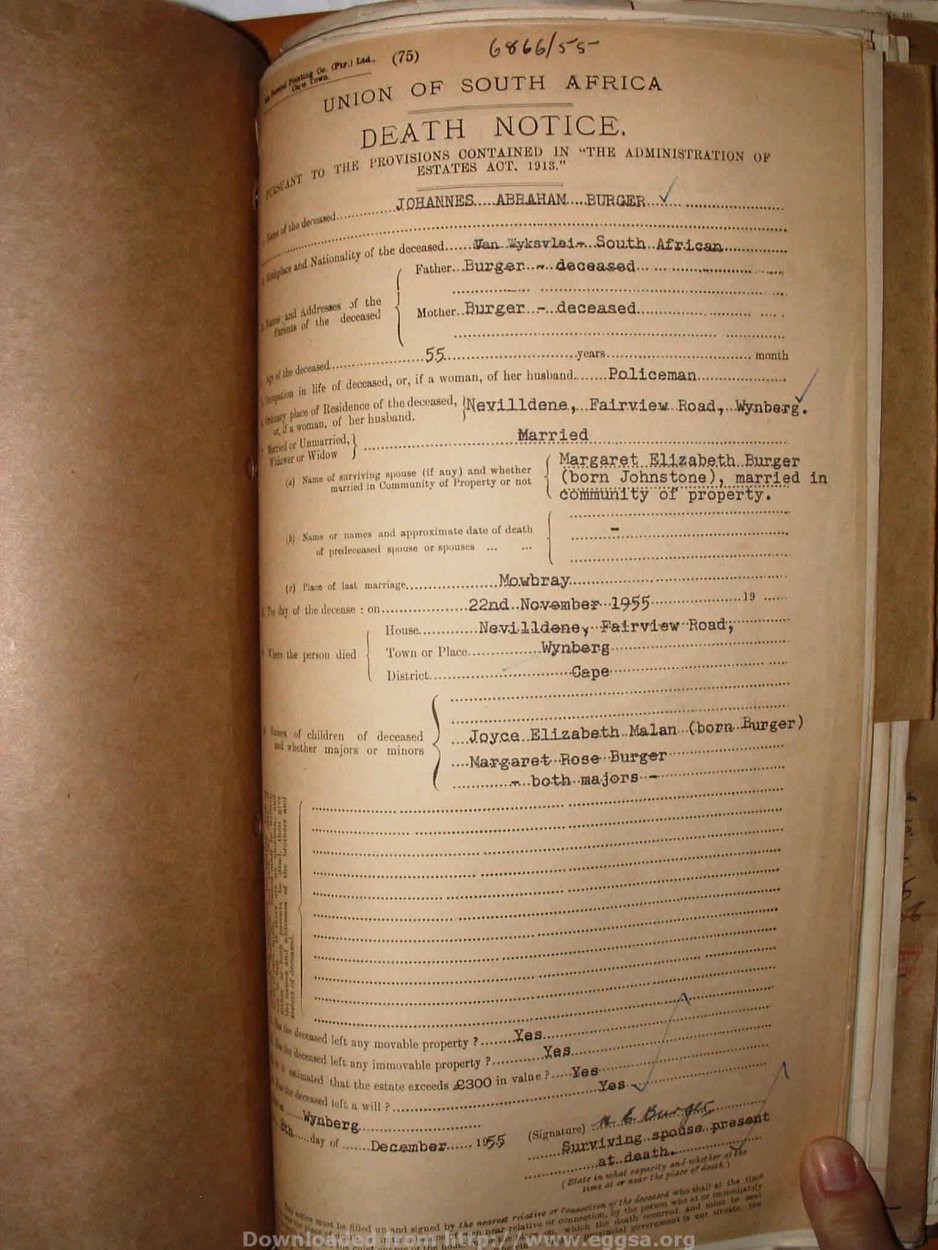 (75) 6866/55
Cape Town.
UNION OF SOUTH AFRICA
DEATH NOTICE.
PURSUANT TO THE PROVISIONS CONTAINED IN "THE ADMINISTRATION OF
ESTATES ACT, 1913."
Name of the deceased JOHANNES ABRAHAM BURGER
Birthplace and Nationality of the deceased Van Wyksvlei- South African
Names and Addresses of the Parents of the deceased
Father Burger - deceased
Mother Burger - deceased
Age of the deceased 55 years month
Occupation in life of deceased, or, if a woman, of her husband Policeman
Ordinary place of Residence of the deceased, or, if a woman, of her husband. Nevilldene, Fairview Road, Wynberg.
Married or Unmarried, Widower or Widow Married
(a) Name of surviving spouse (if any) and whether married in Community of Property or not
Margaret Elizabeth Burger
(born Johnstone), married in
community of property.
(b) Name or names and approximate date of death
of predeceased spouse or spouses ... ... -
(c) Place of last marriage Mowbray
The day of the decease : on 22nd November 1955 19
Where the person died
House Nevilldene, Fairview Road,
Town or Place Wynberg
District Cape
Names of children of deceased and whether majors or minors
Joyce Elizabeth Malan (born Burger)
Margaret Rose Burger
- both majors -
Has the deceased left any movable property ? Yes
Has the deceased left any immovable property ? Yes
Is it estimated that the estate exceeds £300 in value ? Yes
Has the deceased left a will ? Yes
Wynberg
8th day of December 1955
(Signature) Burger
Surviving spouse present
at death.
(State in what capacity and whether at the
time at or near the place of death.)
notice must be filled up and signed by the nearest relative or connection of the deceased who shall at the time
near relative or connection, by the person who at or immediately
which the death occurred, and must be sent
provincial government is not situate, the
Downloaded from http://www.eggsa.org